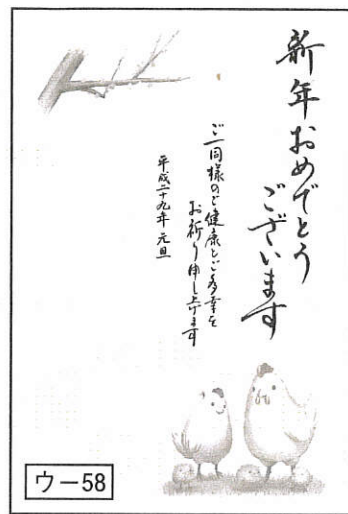 新年おめでとう
ございます
ご一同様のご健康とご多幸を
お祈り申し上げます
平成二十九年 元旦
ウー58